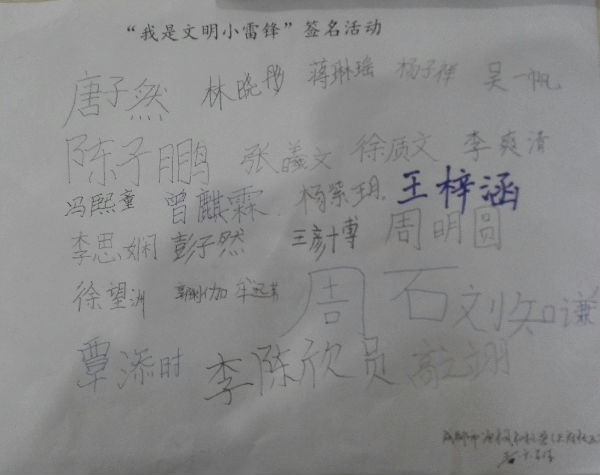 “我是文明小雷锋”签名活动
唐子然 林晓彤 蒋琳瑶 杨子祥 吴一帆
陈子鹏 张議文 徐质文 李爽清
冯熙童 曾麒霖 杨紫玥 王梓涵
李思娴 彭子然 王彦博 周明圆
徐望洲 周石 刘知谦
覃添时 李陈欣员 敲翊